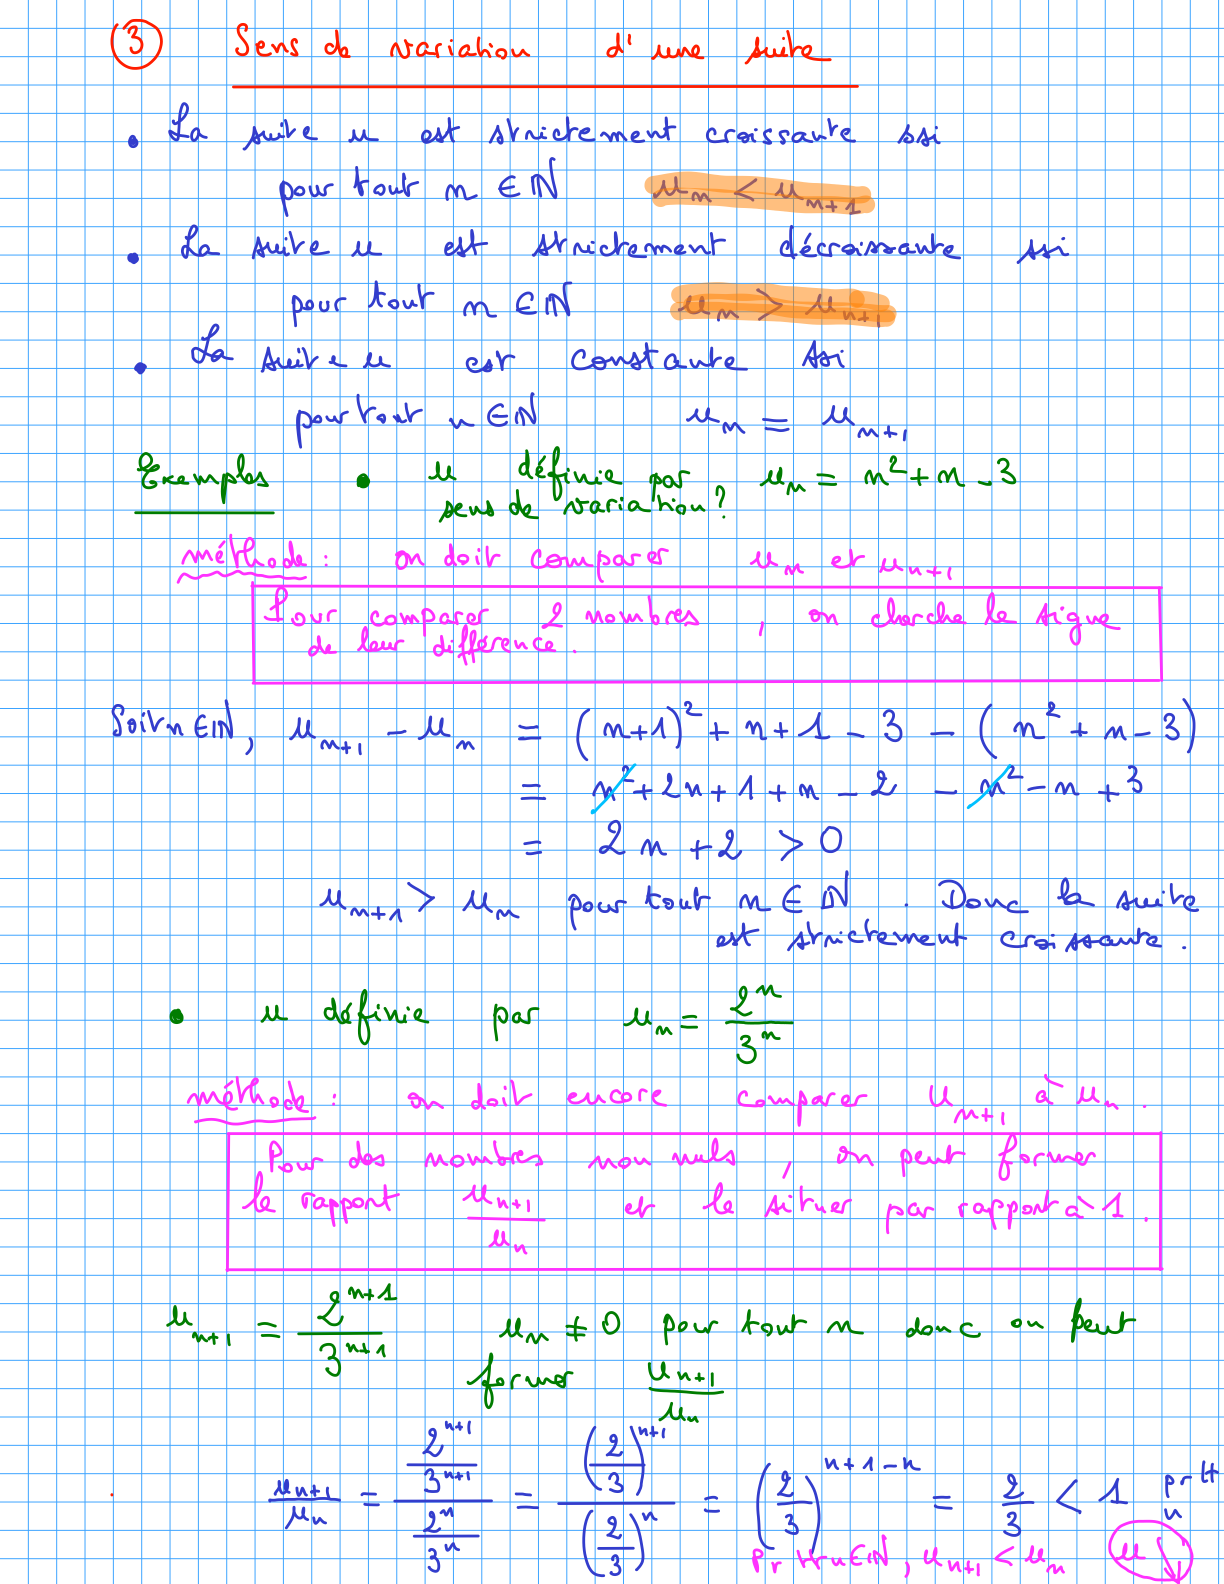 ③ Sens de variation d'une suite
• La suite u est strictement croissante ssi
pour tout n ∈ ℕ uₙ < uₙ₊₁
• La suite u est strictement décroissante ssi
pour tout n ∈ ℕ uₙ > uₙ₊₁
• La suite u est constante ssi
pour tout n ∈ ℕ uₙ = uₙ₊₁
Exemples • u définie par uₙ = n² + n - 3
sens de variation ?
méthode : on doit comparer uₙ et uₙ₊₁
Pour comparer 2 nombres, on cherche le signe
de leur différence.
Soit n ∈ ℕ, uₙ₊₁ - uₙ = (n+1)² + n + 1 - 3 - (n² + n - 3)
= n² + 2n + 1 + n - 2 - n² - n + 3
= 2n + 2 > 0
uₙ₊₁ > uₙ pour tout n ∈ ℕ. Donc la suite
est strictement croissante.
• u définie par uₙ = 2ⁿ/3ⁿ
méthode : on doit encore comparer uₙ₊₁ à uₙ.
Pour des nombres non nuls, on peut former
le rapport uₙ₊₁/uₙ et le situer par rapport à 1.
uₙ₊₁ = 2ⁿ⁺¹/3ⁿ⁺¹ uₙ ≠ 0 pour tout n donc on peut
former uₙ₊₁/uₙ
uₙ₊₁/uₙ = (2ⁿ⁺¹/3ⁿ⁺¹)/(2ⁿ/3ⁿ) = (2/3)ⁿ⁺¹/(2/3)ⁿ = (2/3)ⁿ⁺¹⁻ⁿ = 2/3 < 1 pr tt n
Pr tt n ∈ ℕ, uₙ₊₁ < uₙ u ↘